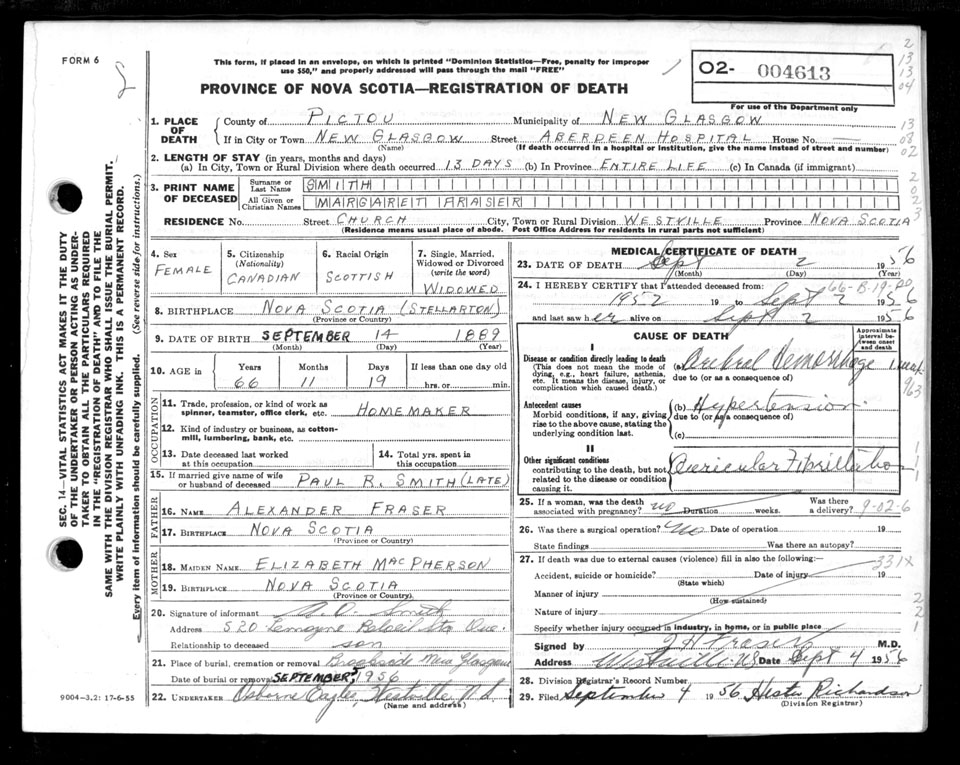 FORM 6
This form, if placed in an envelope, on which is printed "Dominion Statistics—Free, penalty for improper
use $50," and properly addressed will pass through the mail "FREE"
PROVINCE OF NOVA SCOTIA—REGISTRATION OF DEATH
02- 004613
For use of the Department only
1. PLACE OF DEATH County of PICTOU Municipality of NEW GLASGOW
If in City or Town NEW GLASGOW Street ABERDEEN HOSPITAL House No. —
(Name) (If death occurred in a hospital or institution, give the name instead of street and number)
2. LENGTH OF STAY (in years, months and days)
(a) In City, Town or Rural Division where death occurred 13 DAYS (b) In Province ENTIRE LIFE (c) In Canada (if immigrant)
3. PRINT NAME OF DECEASED Surname or Last Name SMITH
All Given or Christian Names MARGARET FRASER
RESIDENCE No. Street CHURCH City, Town or Rural Division WESTVILLE Province NOVA SCOTIA
(Residence means usual place of abode. Post Office Address for residents in rural parts not sufficient)
4. Sex FEMALE
5. Citizenship (Nationality) CANADIAN
6. Racial Origin SCOTTISH
7. Single, Married, Widowed or Divorced (write the word) WIDOWED
8. BIRTHPLACE NOVA SCOTIA (STELLARTON)
(Province or Country)
9. DATE OF BIRTH SEPTEMBER 14 1889
(Month) (Day) (Year)
10. AGE in Years Months Days If less than one day old
66 11 19 hrs. or min.
OCCUPATION
11. Trade, profession, or kind of work as
spinner, teamster, office clerk, etc. HOMEMAKER
12. Kind of industry or business, as cotton-
mill, lumbering, bank, etc.
13. Date deceased last worked at this occupation
14. Total yrs. spent in this occupation
15. If married give name of wife
or husband of deceased PAUL R. SMITH (LATE)
FATHER
16. NAME ALEXANDER FRASER
17. BIRTHPLACE NOVA SCOTIA
(Province or Country)
MOTHER
18. MAIDEN NAME ELIZABETH MACPHERSON
19. BIRTHPLACE NOVA SCOTIA
(Province or Country)
20. Signature of informant Smith
Address 520 Lemoyne Beloeil Sta Que.
Relationship to deceased son
21. Place of burial, cremation or removal Brookside New Glasgow
Date of burial or removal SEPTEMBER 5 1956
22. UNDERTAKER Osborne Eagles, Westville, N.S.
(Name and address)
9004-3.2: 17-6-55
MEDICAL CERTIFICATE OF DEATH
23. DATE OF DEATH Sept 2 1956
(Month) (Day) (Year)
24. I HEREBY CERTIFY that I attended deceased from: 66-B-19-00
1952 19 to Sept 2 1956
and last saw her alive on Sept 2 1956
CAUSE OF DEATH
Approximate interval between onset and death
I
Disease or condition directly leading to death
(This does not mean the mode of
dying, e.g., heart failure, asthenia,
etc. It means the disease, injury, or
complication which caused death.)
(a) Cerebral Hemorrhage 1 week
due to (or as a consequence of)
963
Antecedent causes
Morbid conditions, if any, giving
rise to the above cause, stating the
underlying condition last.
(b) Hypertension
due to (or as a consequence of)
(c)
II
Other significant conditions
contributing to the death, but not
related to the disease or condition
causing it.
Auricular Fibrillation
25. If a woman, was the death
associated with pregnancy? no Duration weeks. Was there a delivery? 9-02-6
26. Was there a surgical operation? no Date of operation 19
State findings Was there an autopsy?
27. If death was due to external causes (violence) fill in also the following:— 331X
Accident, suicide or homicide? Date of injury 19
(State which)
Manner of injury
(How sustained)
Nature of injury
Specify whether injury occurred in industry, in home, or in public place
Signed by J H Fraser M.D.
Address Westville N.S. Date Sept 4 1956
28. Division Registrar's Record Number
29. Filed September 4 1956 Hester Richardson
(Division Registrar)
SEC. 14—VITAL STATISTICS ACT MAKES IT THE DUTY
OF THE UNDERTAKER OR PERSON ACTING AS UNDER-
TAKER TO OBTAIN ALL THE PARTICULARS REQUIRED
IN THE "REGISTRATION OF DEATH" AND TO FILE THE
SAME WITH THE DIVISION REGISTRAR WHO SHALL ISSUE THE BURIAL PERMIT.
WRITE PLAINLY WITH UNFADING INK. THIS IS A PERMANENT RECORD.
Every item of information should be carefully supplied. (See reverse side for instructions.)
2
13
13
04
13
08
02
2
0
2
3
1
1
2
2
1